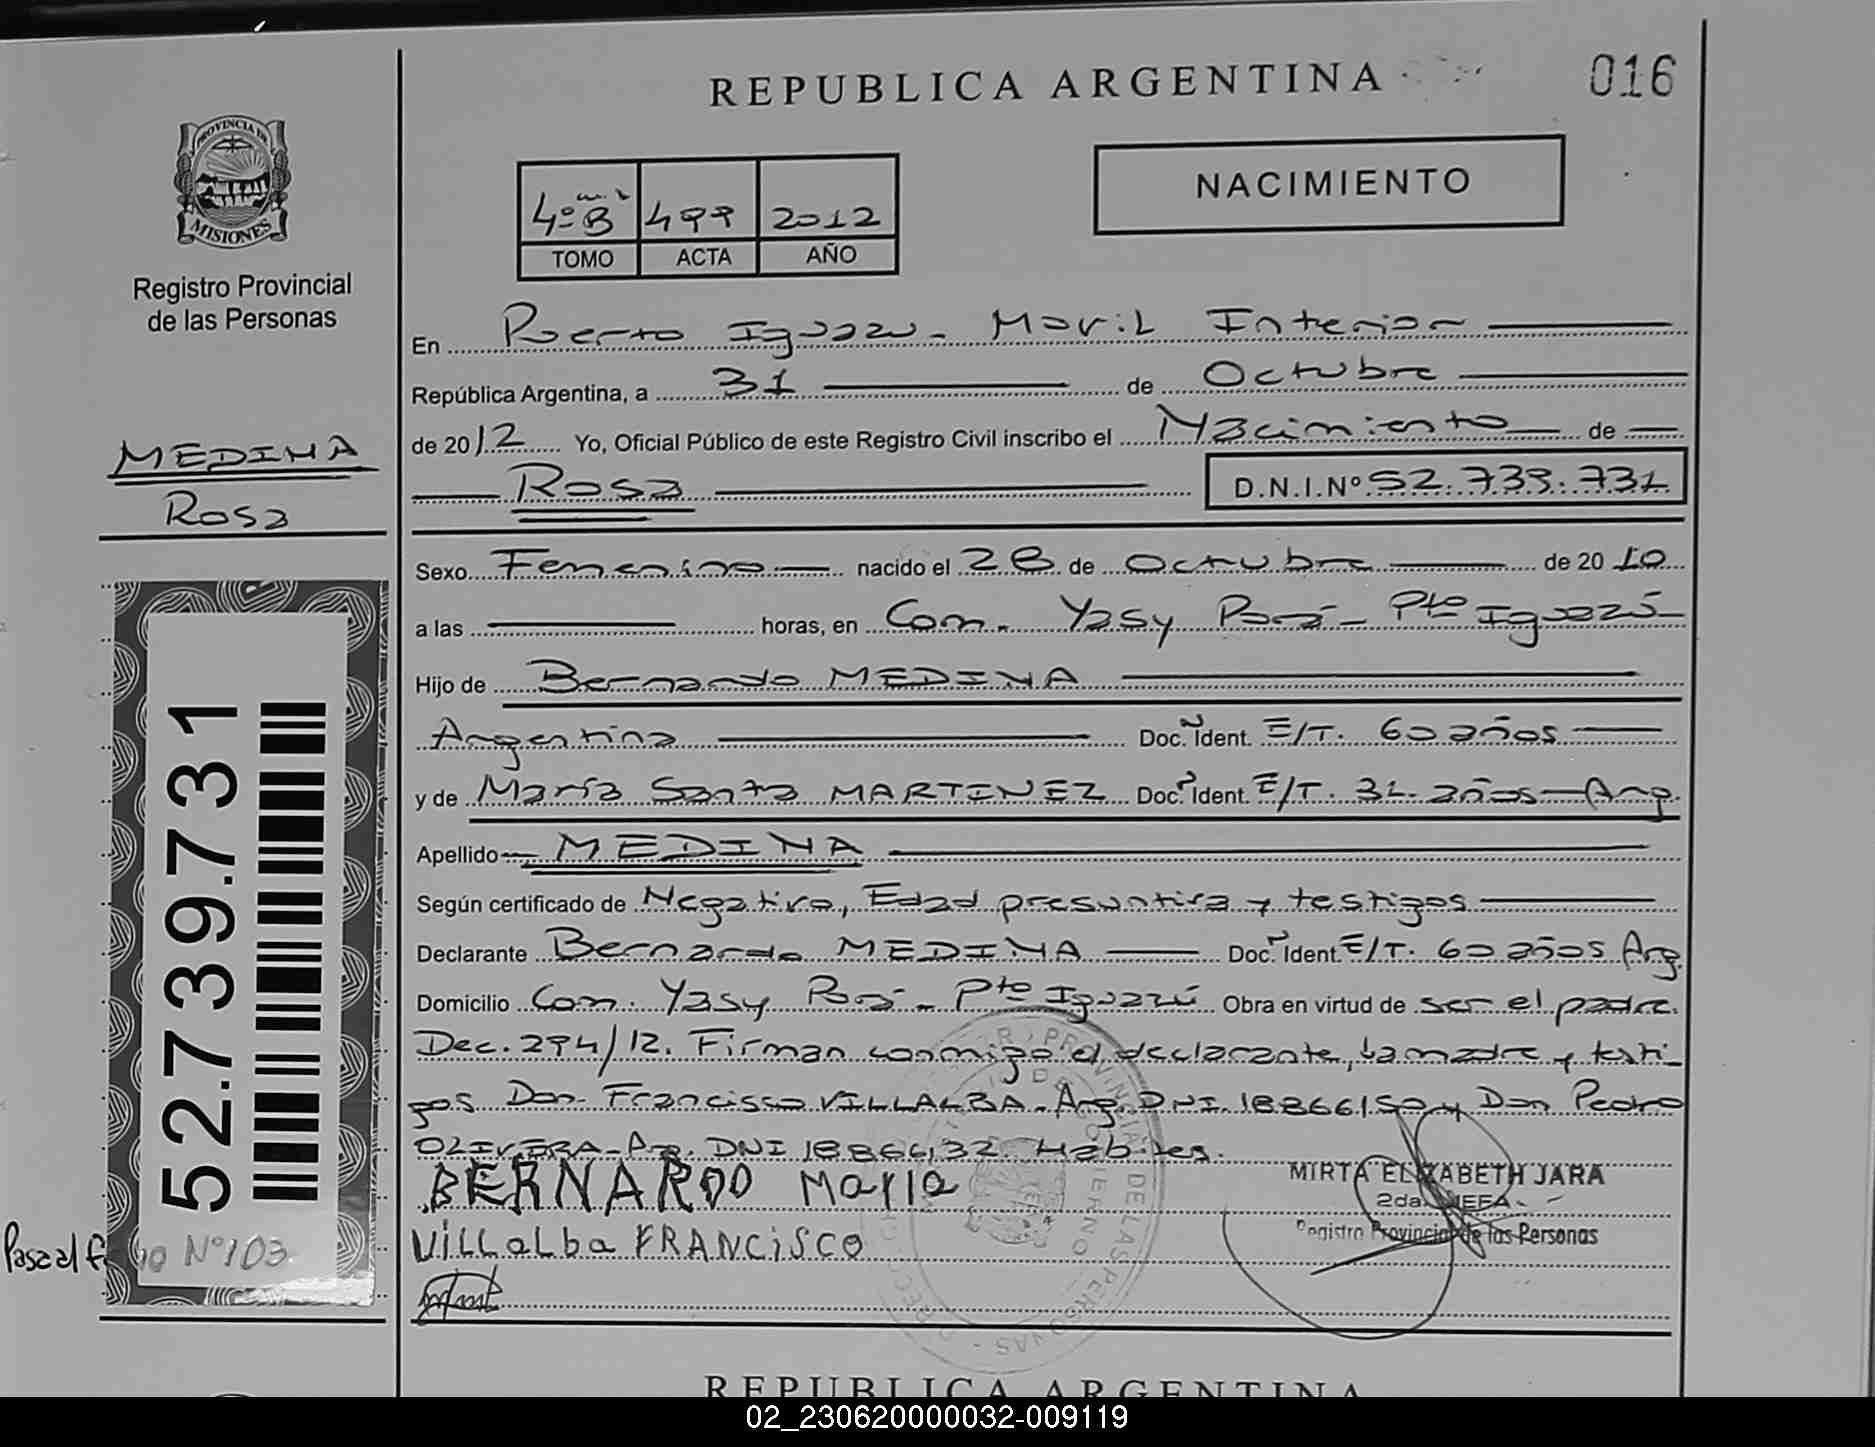 REPUBLICA ARGENTINA
016
PROVINCIA DE
MISIONES
Registro Provincial
de las Personas
NACIMIENTO
4º B 499 2012
TOMO ACTA AÑO
En Puerto Iguazu - Movil Interior
República Argentina, a 31 de Octubre
de 2012 Yo, Oficial Público de este Registro Civil inscribo el Nacimiento de
Rosa D.N.I.Nº 52.739.731
MEDINA
Rosa
Sexo Femenino nacido el 28 de Octubre de 2010
a las horas, en Com. Yasy Porá - Pto Iguazú
Hijo de Bernardo MEDINA
Argentina Doc. Ident. E/T. 60 años
y de María Santa MARTINEZ Doc. Ident. E/T. 31 años - Arg.
Apellido MEDINA
Según certificado de Negativo, Edad presuntiva y testigos
Declarante Bernardo MEDINA Doc. Ident. E/T. 60 años Arg.
Domicilio Com. Yasy Porá - Pto Iguazú Obra en virtud de ser el padre.
Dec. 294/12. Firman conmigo el declarante, la madre y testi-
gos Don Francisco VILLALBA - Arg. DNI 18866150 y Don Pedro
OLIVERA - Arg. DNI 18866132 Hábiles.
BERNARDO Maria
VILLALba FRANCISCO
MIRTA ELIZABETH JARA
2da. JEFA
Registro Provincial de las Personas
52.739.731
Pasa al folio Nº 103
REPUBLICA ARGENTINA
02_230620000032-009119